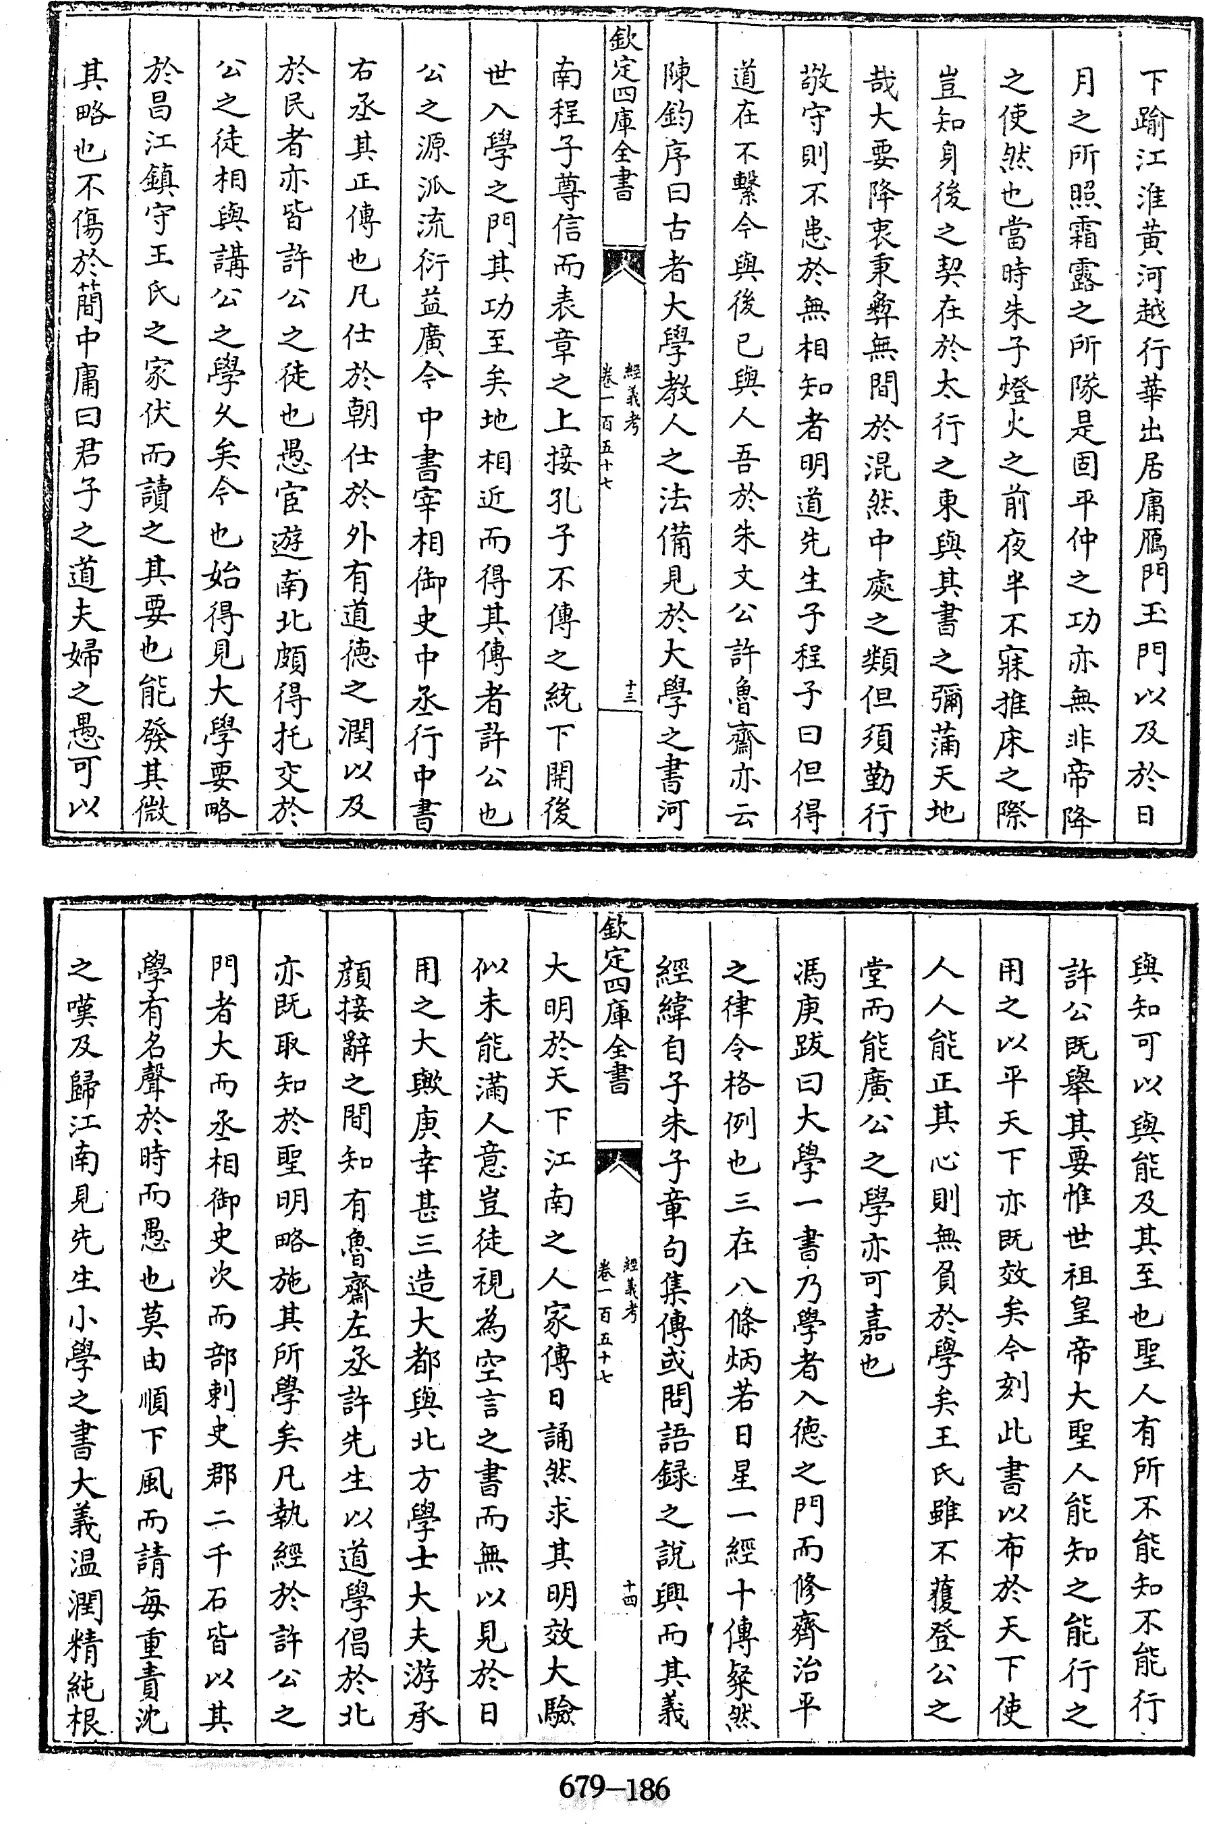 下踰江淮黄河越行華出居庸鴈門玉門以及於日
月之所照霜露之所隊是固平仲之功亦無非帝降
之使然也當時朱子燈火之前夜半不寐推床之際
豈知身後之契在於太行之東與其書之彌滿天地
哉大要降衷秉彞無間於混然中處之類但須勤行
敬守則不患於無相知者明道先生子程子曰但得
道在不繫今與後已與人吾於朱文公許魯齋亦云
陳鈞序曰古者大學教人之法備見於大學之書河
欽定四庫全書
經義考
卷一百五十七
十三
南程子尊信而表章之上接孔子不傳之統下開後
世入學之門其功至矣地相近而得其傳者許公也
公之源派流衍益廣今中書宰相御史中丞行中書
右丞其正傳也凡仕於朝仕於外有道德之潤以及
於民者亦皆許公之徒也愚宦遊南北頗得托交於
公之徒相與講公之學久矣今也始得見大學要略
於昌江鎮守王氏之家伏而讀之其要也能發其微
其略也不傷於簡中庸曰君子之道夫婦之愚可以
與知可以與能及其至也聖人有所不能知不能行
許公既舉其要惟世祖皇帝大聖人能知之能行之
用之以平天下亦既效矣今刻此書以布於天下使
人人能正其心則無負於學矣王氏雖不獲登公之
堂而能廣公之學亦可嘉也
馮庚跋曰大學一書乃學者入德之門而修齊治平
之律令格例也三在八條炳若日星一經十傳粲然
經緯自子朱子章句集傳或問語録之說興而其義
欽定四庫全書
經義考
卷一百五十七
十四
大明於天下江南之人家傳日誦然求其明效大驗
似未能滿人意豈徒視為空言之書而無以見於日
用之大歟庚幸甚三造大都與北方學士大夫游承
顔接辭之間知有魯齋左丞許先生以道學倡於北
亦既取知於聖明略施其所學矣凡執經於許公之
門者大而丞相御史次而部刺史郡二千石皆以其
學有名聲於時而愚也莫由順下風而請每重責沈
之嘆及歸江南見先生小學之書大義温潤精純根
679—186